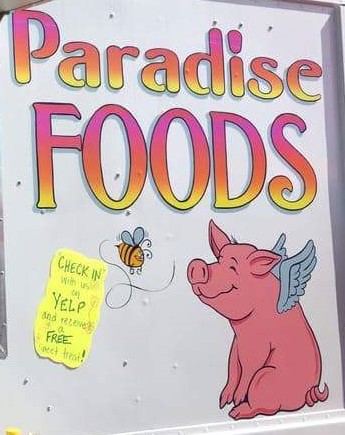 Paradise
FOODS
CHECK IN
with us
on
YELP
and receive
a
FREE
sweet treat!